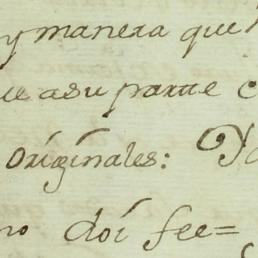 y manera que
ue asu parte
Originales: Y
no doi fee=